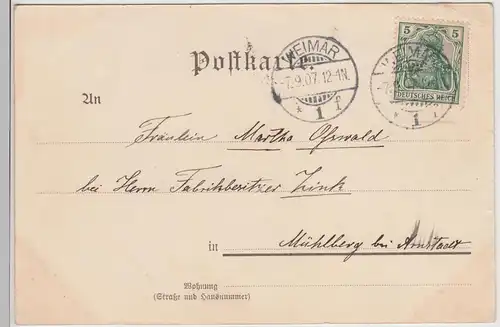 Postkarte.
WEIMAR
7.9.07.12-1N.
* 1 f
5 5
DEUTSCHES REICH
WEIMAR
1
An
Fräulein Martha Oßwald
bei Herrn Fabrikbesitzer Zink
in Mühlberg bei Arnstadt
Wohnung
(Straße und Hausnummer)